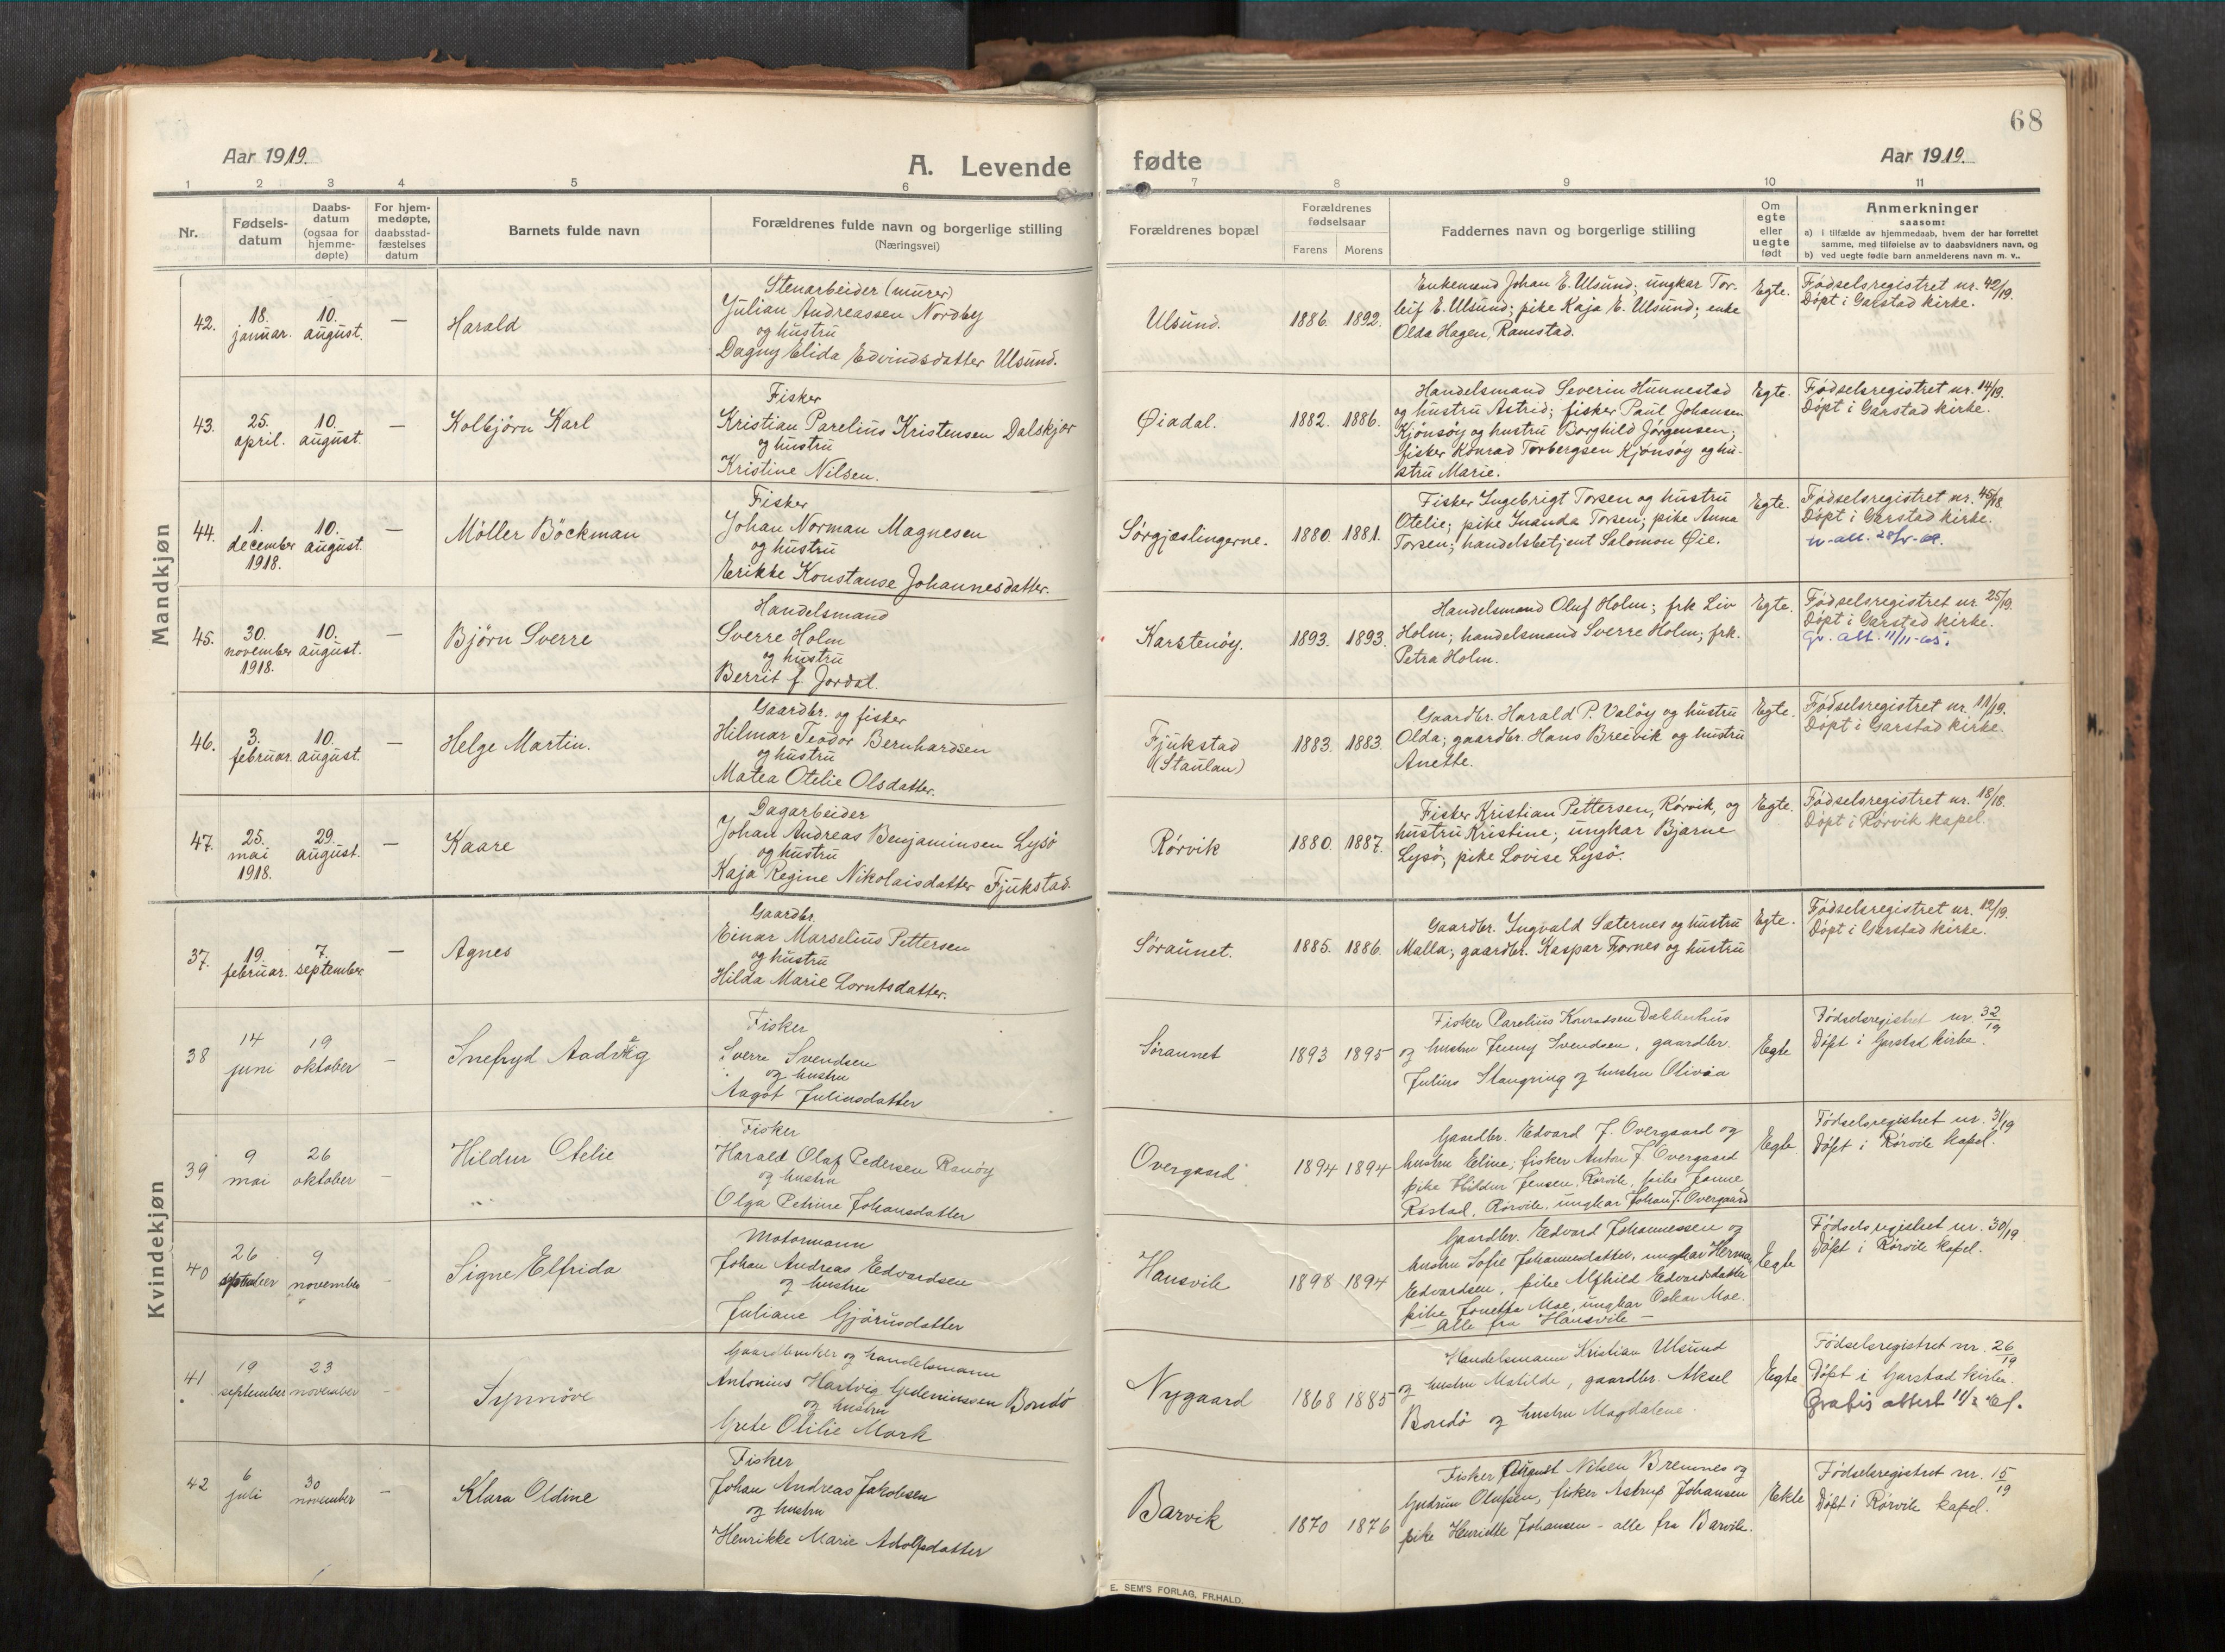 68
Aar 1919.
A. Levende
fødte
Aar 1919.
1 2 3 4 5 6 7 8 9 10 11
Nr.
Fødsels-
datum
Daabs-
datum
(ogsaa for
hjemme-
døpte)
For hjem-
medøpte,
daabsstad-
fæstelses
datum
Barnets fulde navn
Forældrenes fulde navn og borgerlige stilling
(Næringsvei)
Forældrenes bopæl
Forældrenes
fødselsaar
Farens Morens
Faddernes navn og borgerlige stilling
Om
egte
eller
uegte
født
Anmerkninger
saasom:
a) i tilfælde av hjemmedaab, hvem der har forrettet
samme, med tilføielse av to daabsvidners navn, og
b) ved uegte fødte barn anmelderens navn m. v..
Mandkjøn
42.
18.
januar.
10.
august.
—
Harald
Stenarbeider (murer)
Julian Andreassen Nordby
og hustru
Dagny Elida Edvindsdatter Ulsund.
Ulsund.
1886. 1892.
Enkemand Johan E. Ulsund; ungkar Tor-
leif E. Ulsund; pike Kaja E. Ulsund; enke
Olda Hagen, Ramstad.
Egte.
Fødselsregistret nr. 42/19.
Døpt i Garstad kirke.
43.
25.
april.
10.
august.
—
Kolbjörn Karl
Fisker
Kristian Parelius Kristensen Dalskjær
og hustru
Kristine Nilsen.
Øiadal.
1882. 1886.
Handelsmand Severin Hunnestad
og hustru Astrid; fisker Paul Johansen
Kjönsöy og hustru Borghild Jørgensen;
fisker Konrad Torbergsen Kjönsöy og hu-
stru Marie.
Egte.
Fødselsregistret nr. 14/19.
Döpt i Garstad kirke.
44.
1.
december
1918.
10.
august.
—
Möller Böckman
Fisker
Johan Norman Magnesen
og hustru
Erikke Konstanse Johannesdatter.
Sörgjæslingerne.
1880. 1881.
Fisker Ingebrigt Torsen og hustru
Otelie; pike Inanda Torsen; pike Anna
Torsen; handelsbetjent Salomon Øie.
Egte.
Fødselsregistret nr. 45/18.
Döpt i Garstad kirke.
45.
30.
november
1918.
10.
august.
—
Björn Sverre
Handelsmand
Sverre Holm
og hustru
Berrit f. Jordal.
Karstenöy.
1893. 1893.
Handelsmand Oluf Holm; frk Liv
Holm; handelsmand Sverre Holm; frk.
Petra Holm.
Egte.
Fødselsregistret nr. 25/19.
Döpt i Garstad kirke.
Gr. att. 11/11-65.
46.
3.
februar.
10.
august.
—
Helge Martin.
Gaardbr. og fisker
Hilmar Teodor Bernhardsen
og hustru
Matea Otelie Olsdatter.
Fjukstad
(Staulan)
1883. 1883.
Gaardbr. Harald P. Valöy og hustru
Olda; gaardbr. Hans Breivik og hustru
Anette.
Egte.
Fødselsregistret nr. 11/19.
Döpt i Garstad kirke.
47.
25.
mai
1918.
29.
august.
—
Kaare
Dagarbeider
Johan Andreas Benjaminsen Lysö
og hustru
Kaja Regine Nikolaisdatter Fjukstad.
Rörvik
1880. 1887.
Fisker Kristian Pettersen, Rörvik, og
hustru Kristine; ungkar Bjarne
Lysö; pike Lovise Lysö.
Egte.
Fødselsregistret nr. 18/18.
Döpt i Rörvik kapel.
Kvindekjøn
37.
19.
februar.
7.
september
—
Agnes
Gaardbr.
Einar Marselius Pettersen
og hustru
Hilda Marie Lorntsdatter.
Söraunet.
1885. 1886.
Gaardbr. Ingvald Sæternes og hustru
Malla; gaardbr. Kaspar Fornes og hustru
Egte.
Fødselsregistret nr. 12/19.
Döpt i Garstad kirke.
38
14
juni
19
oktober
-
Snefryd
Fisker
Sverre Svendsen
og hustru
Aagot Juliusdatter
Söraunet
1893 1895
Fisker Parelius Konradsen Dekkerhus
og hustru Jenny Svendsen, gaardbr.
Julius Stangring og hustru Olivia
Egte
Fødselsregistret nr. 32/19
Döpt i Garstad kirke.
39
9
mai
26
oktober
-
Hildur Otelie
Fisker
Harald Olaf Pedersen Ranöy
og hustru
Olga Petrine Johansdatter
Overgaard
1894 1894
Gaardbr. Edvard J. Overgaard og
hustru Eline; fisker Anton J. Overgaard
pike Hildur Jensen, Rörvik, pike Janne
Råstad, Rörvik, ungkar Johan J. Overgaard
Egte
Fødselsregistret nr. 31/19
Döpt i Rörvik kapel.
40
26
september
9
november
-
Signe Elfrida
Motormann
Johan Andreas Edvardsen
og hustru
Juliane Gjörusdatter
Hansvik
1898 1894
Gaardbr. Edvard Johannessen og
hustru Sofie Johannesdatter, ungkar Herman
Edvardsen, pike Alfhild Edvardsdatter
pike Jonetta Moe, ungkar Oskar Moe.
- Alle fra Hansvik -
Egte
Fødselsregistret nr. 30/19
Döpt i Rörvik kapel.
41
19
september
23
november
-
Synnöve
Gaardbruker og handelsmann
Antonius Hartvig Gedeniussen Bondö
og hustru
Grete Otilie Mork
Nygaard
1868 1885
Handelsmann Kristian Ulsund
og hustru Matilde, gaardbr. Aksel
Bondö og hustru Magdalene.
Egte
Fødselsregistret nr. 26/19
Döpt i Garstad kirke.
Gratis attest
42
6
juli
30
november
-
Klara Oldine
Fisker
Johan Andreas Jakobsen
og hustru
Henrikke Marie Adolfsdatter
Barvik
1870 1876
Fisker August Nilsen Bremnes og
Gudrun Olufsen, fisker Astrup Johansen
pike Henriette Johansen - alle fra Barvik.
Ekte
Fødselsregistret nr. 15/19
Döpt i Rörvik kapel.
E. SEM'S FORLAG, FR.HALD.